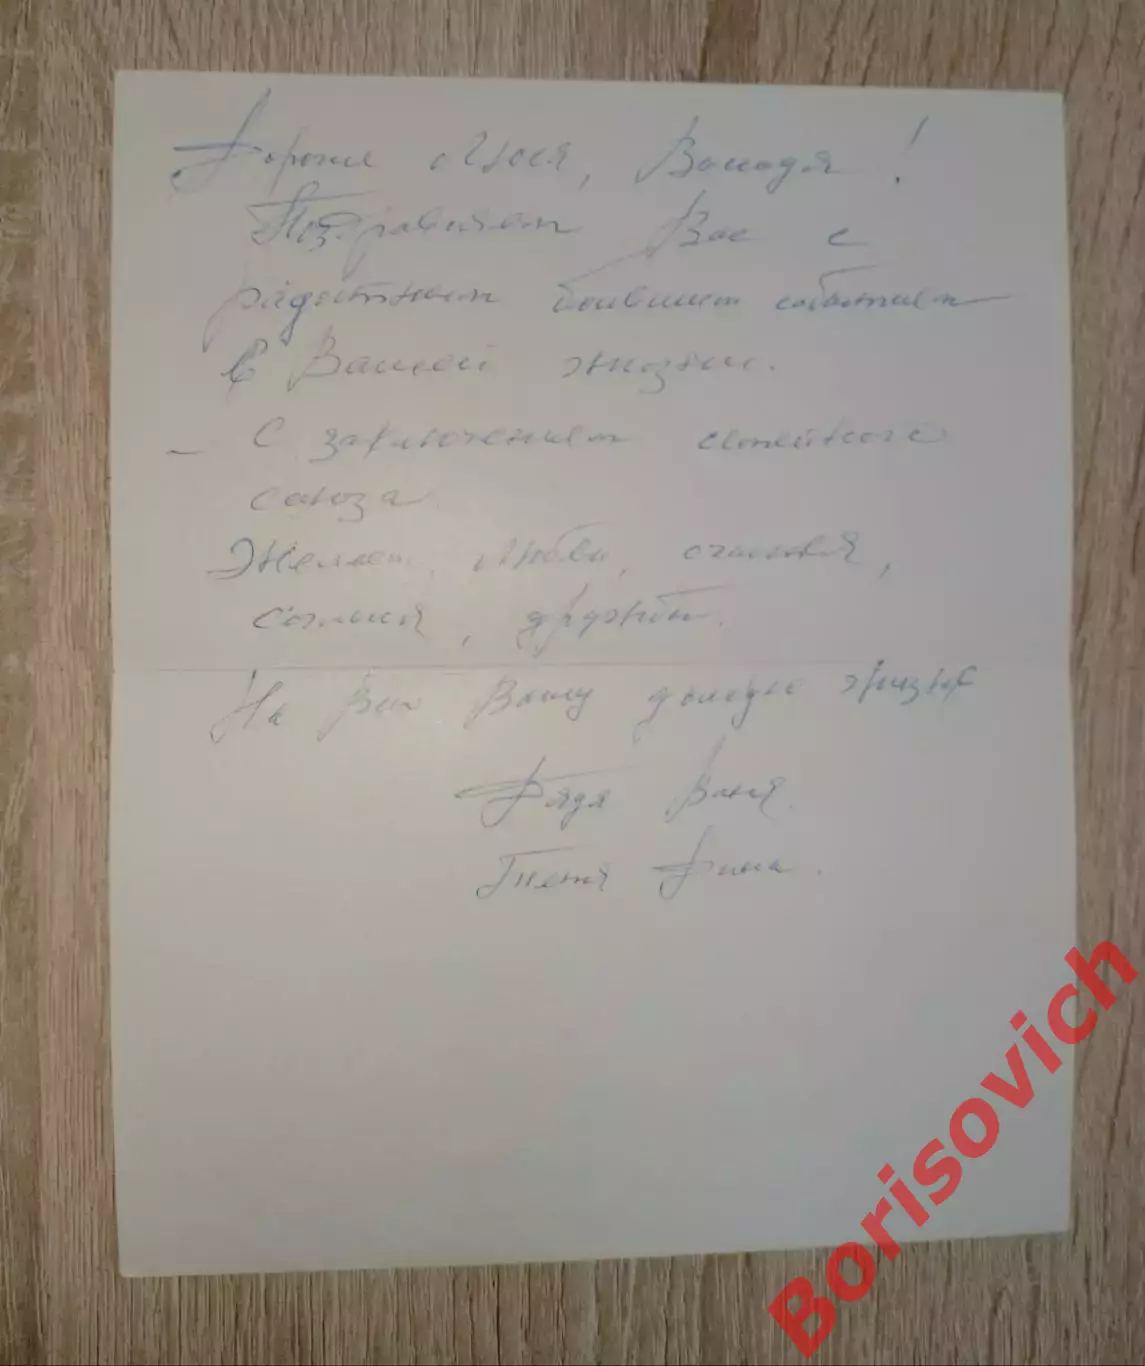 Дорогие Люся, Володя!
Поздравляем Вас с
радостным большим событием
в Вашей жизни.
– С заключением семейного
союза.
Желаем любви, счастья,
согласия, дружбы.
На всю Вашу долгую жизнь
Дядя Ваня.
Тетя Дина.
Borisovich